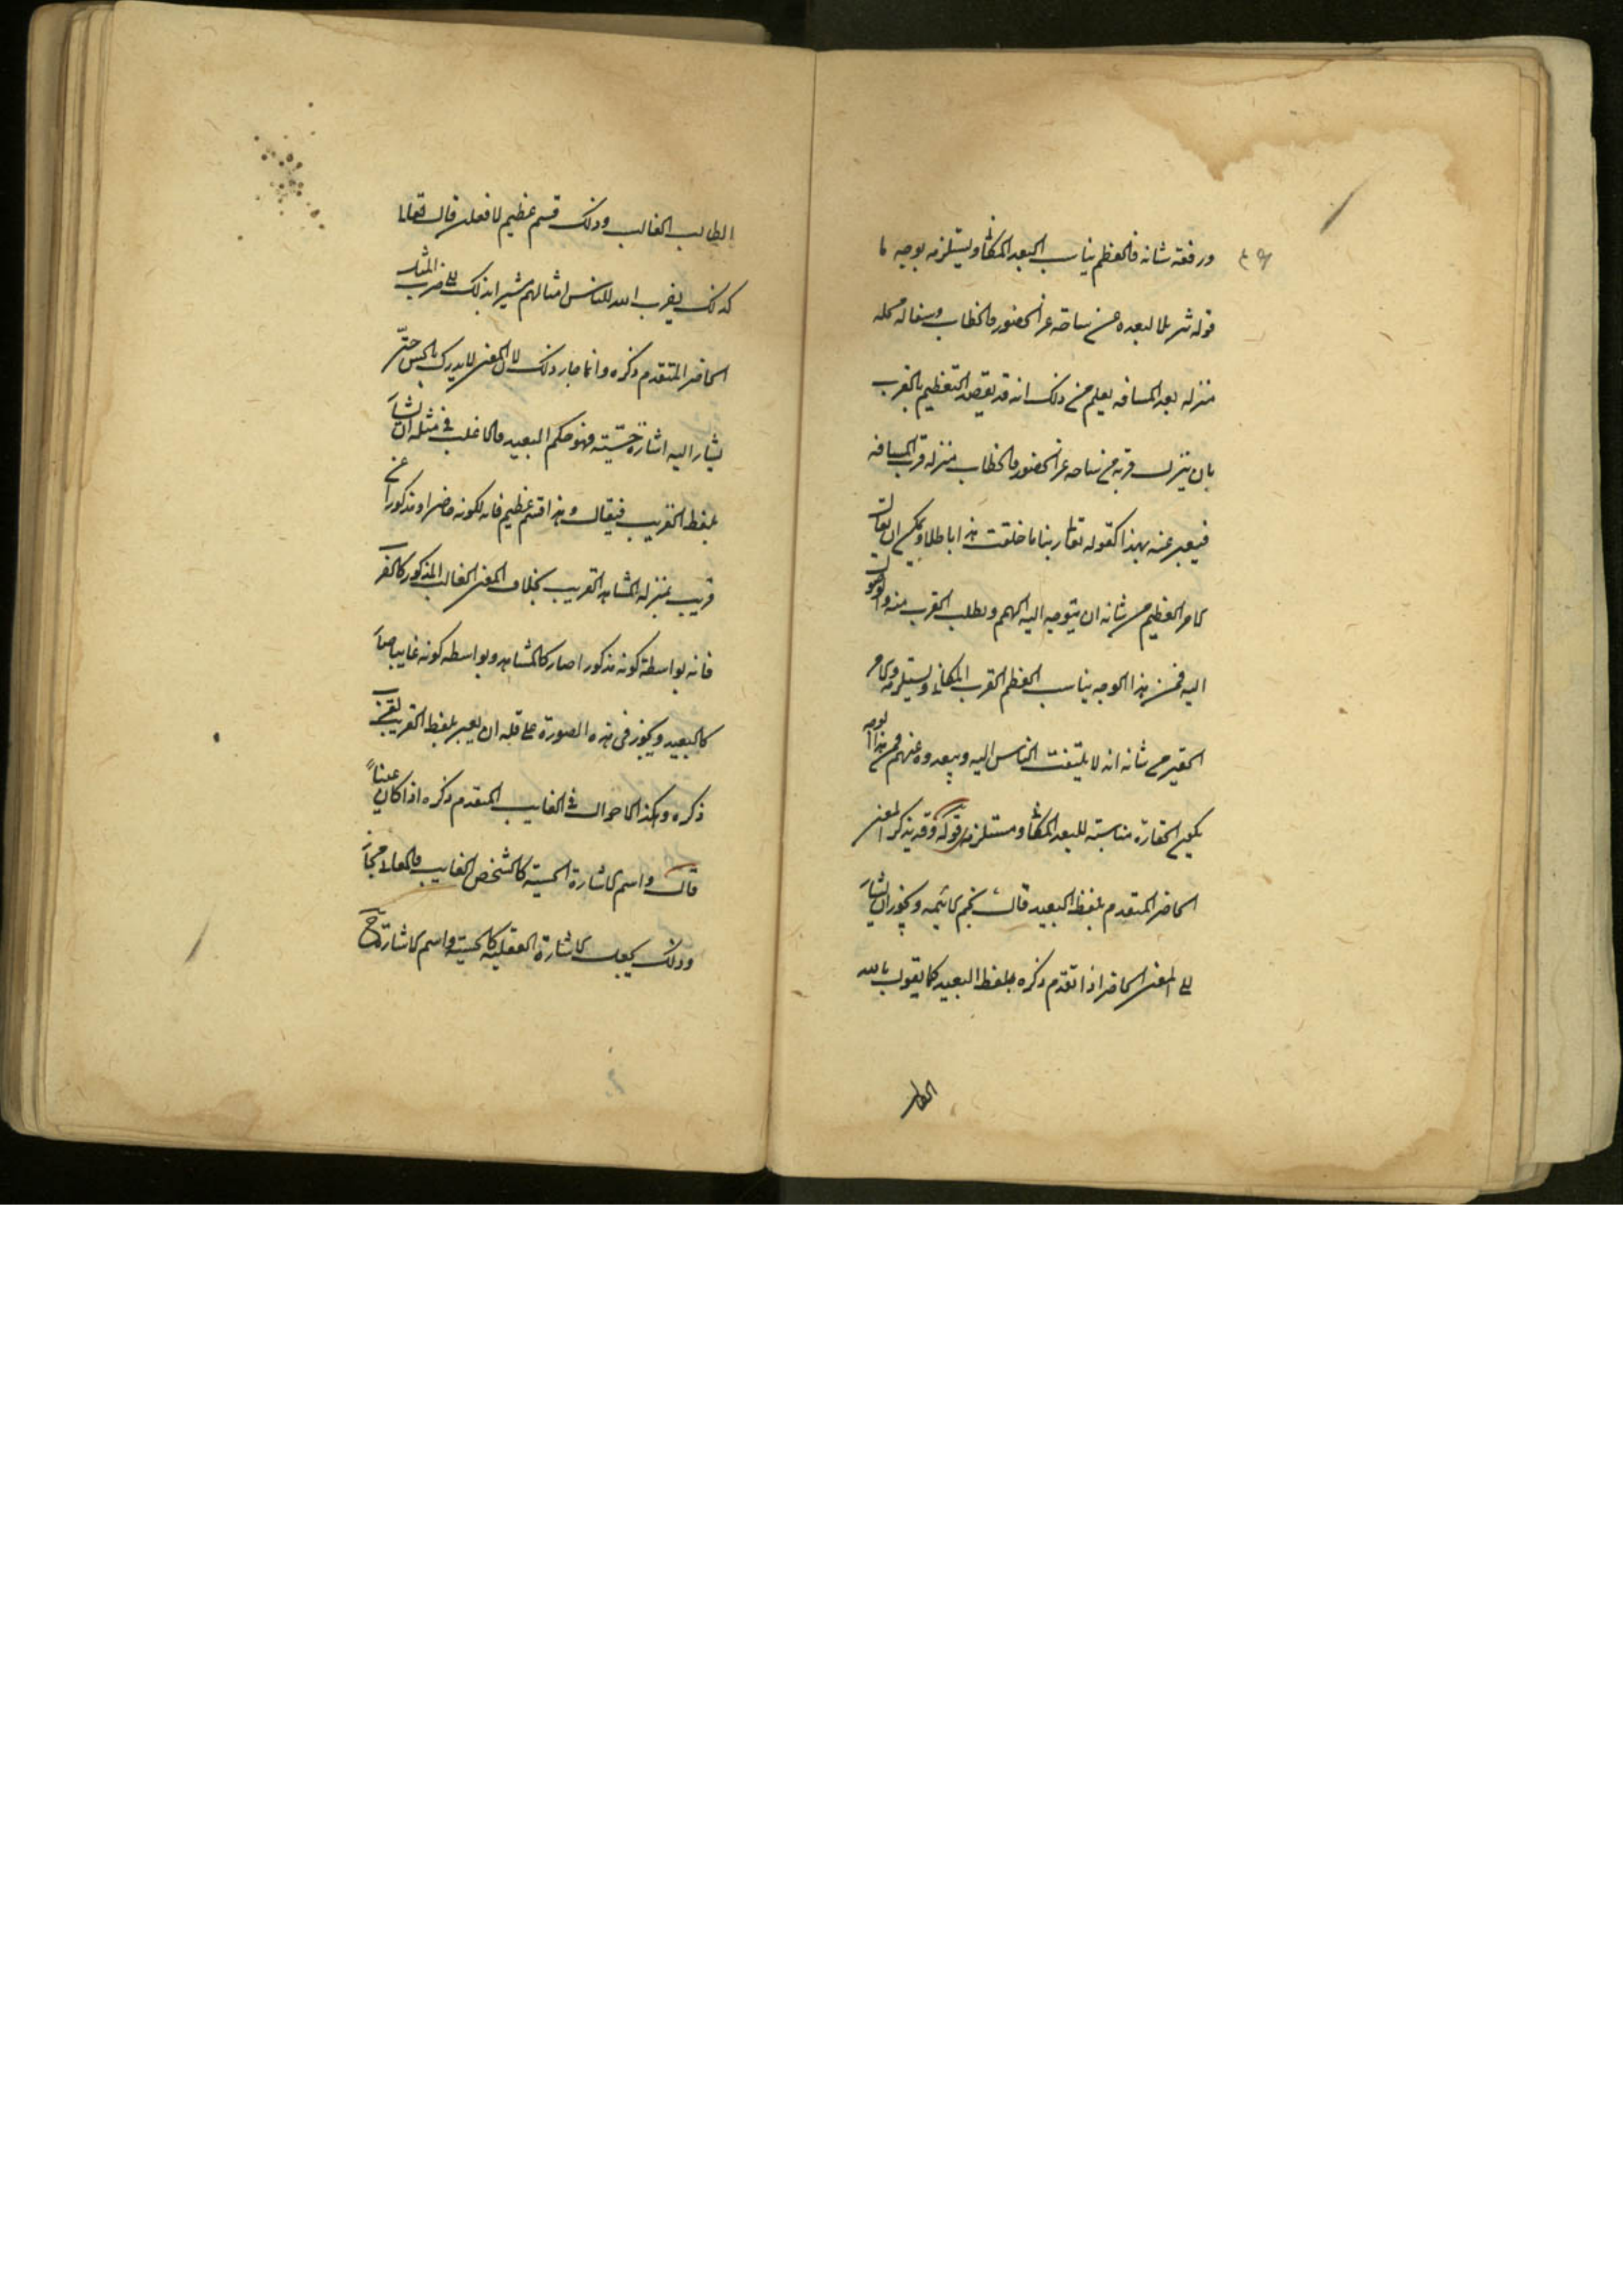 ورفعة شانه فالعظم يناسب البعد المكانى ويستلزمه بوجه ما
قوله تنزيلا لبعده عن ساحة عز الحضور والخطاب وسفاله محله
منزله بعد المسافه يعلم من ذلك انه قد يقصد التعظيم بالقرب
بان ينزل قربه من ساحه عز الحضور والخطاب منزله قرب المسافه
فيعبر عنه بهذا كقوله تعالى ربنا ما خلقت هذا باطلا ويمكن ان يقال
الامر العظيم من شانه ان يتوجه اليه الهمم ويطلب القرب منه والوصول
اليه فمن هذا الوجه يناسب العظم القرب المكانى ويستلزمه والامر
الحقير من شانه انه لا يلتفت الناس اليه ويبعدوه عنهم فمن هذا الوجه
يكون الحقارة مناسبته للبعد المكانى ومستلزمه قوله وقد يذكر المعنى
الحاضر المتقدم بلفظ البعيد قال نجم الائمه ويجوز ان يشار
الى المعنى الحاضر اذا تقدم ذكره بلفظ البعيد كما يقول بالله
الطالب
الطالب الغالب وذلك قسم عظيم لافعلن قال تعالى
كذلك يضرب الله للناس امثالهم مشيرا بذلك الى ضرب المثل
الحاضر المتقدم ذكره وانما جاز ذلك لان المعنى لا يدرك بالحس حتى
يشار اليه اشارة حسّيّة فهو حكم البعيد والاغلب فى مثله ان يشار
بلفظ القريب فيقال وهذا قسم عظيم فانه لكونه حاضرا ومذكورا عن
قريب بمنزله المشاهد القريب بخلاف المعنى الغائب المذكور كالضرب
فانه بواسطة كونه مذكورا صار كالمشاهد وبواسطه كونه غايبا صار
كالبعيد ويجوز فى هذه الصورة على قلة ان يعبر بلفظ القريب لقرب
ذكره وهكذا الاحوال فى الغايب المتقدم ذكره اذا كان عينا
قال واسم الاشارة الحسية كالشخص الغايب والمعانى مجاز
وذلك بجعل الاشارة العقلية كالحسية واسم الاشارة